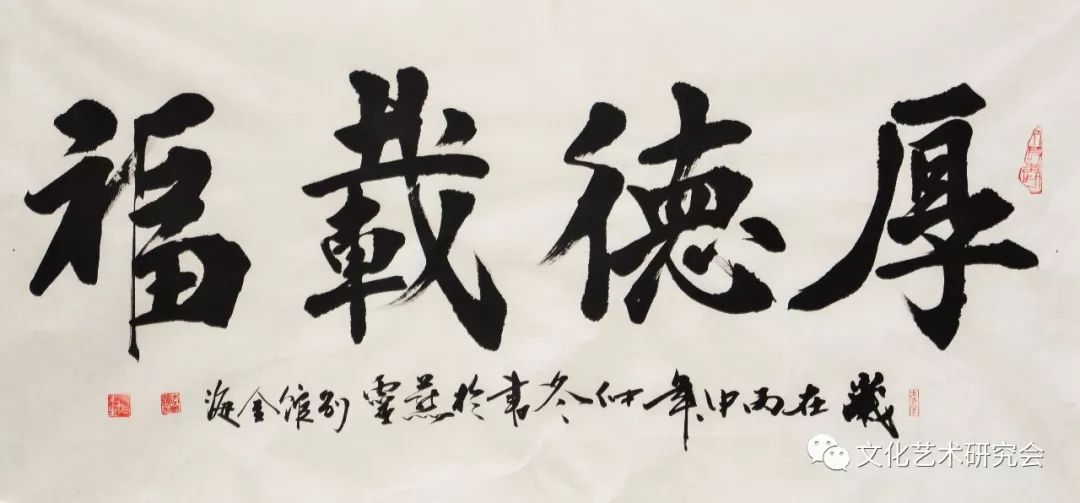 厚德載福
歲在丙申年仲冬書於燕靈别館金海
文化艺术研究会